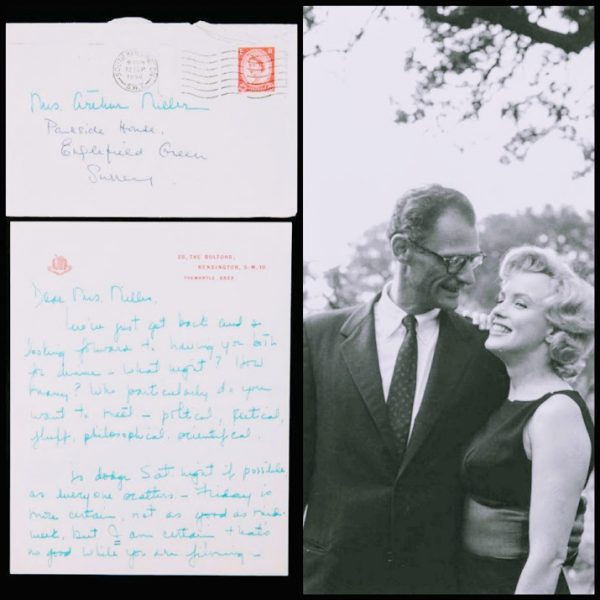 SOUTH KENSINGTON
S.W.7
Mrs. Arthur Miller
Parkside House,
Englefield Green
Surrey
THE BOLTONS,
KENSINGTON, S.W. 10.
FREMANTLE
Dear Mrs. Miller,
We've just got back and
looking forward to having you both
for dinner – What night? How
many? Who particularly do you
want to meet – political, poetical,
fluff, philosophical, scientifical.
to dodge Sat. night if possible
as everyone scatters – Friday is
more certain, not as good as mid-
week, but I am certain that's
no good while you are filming –